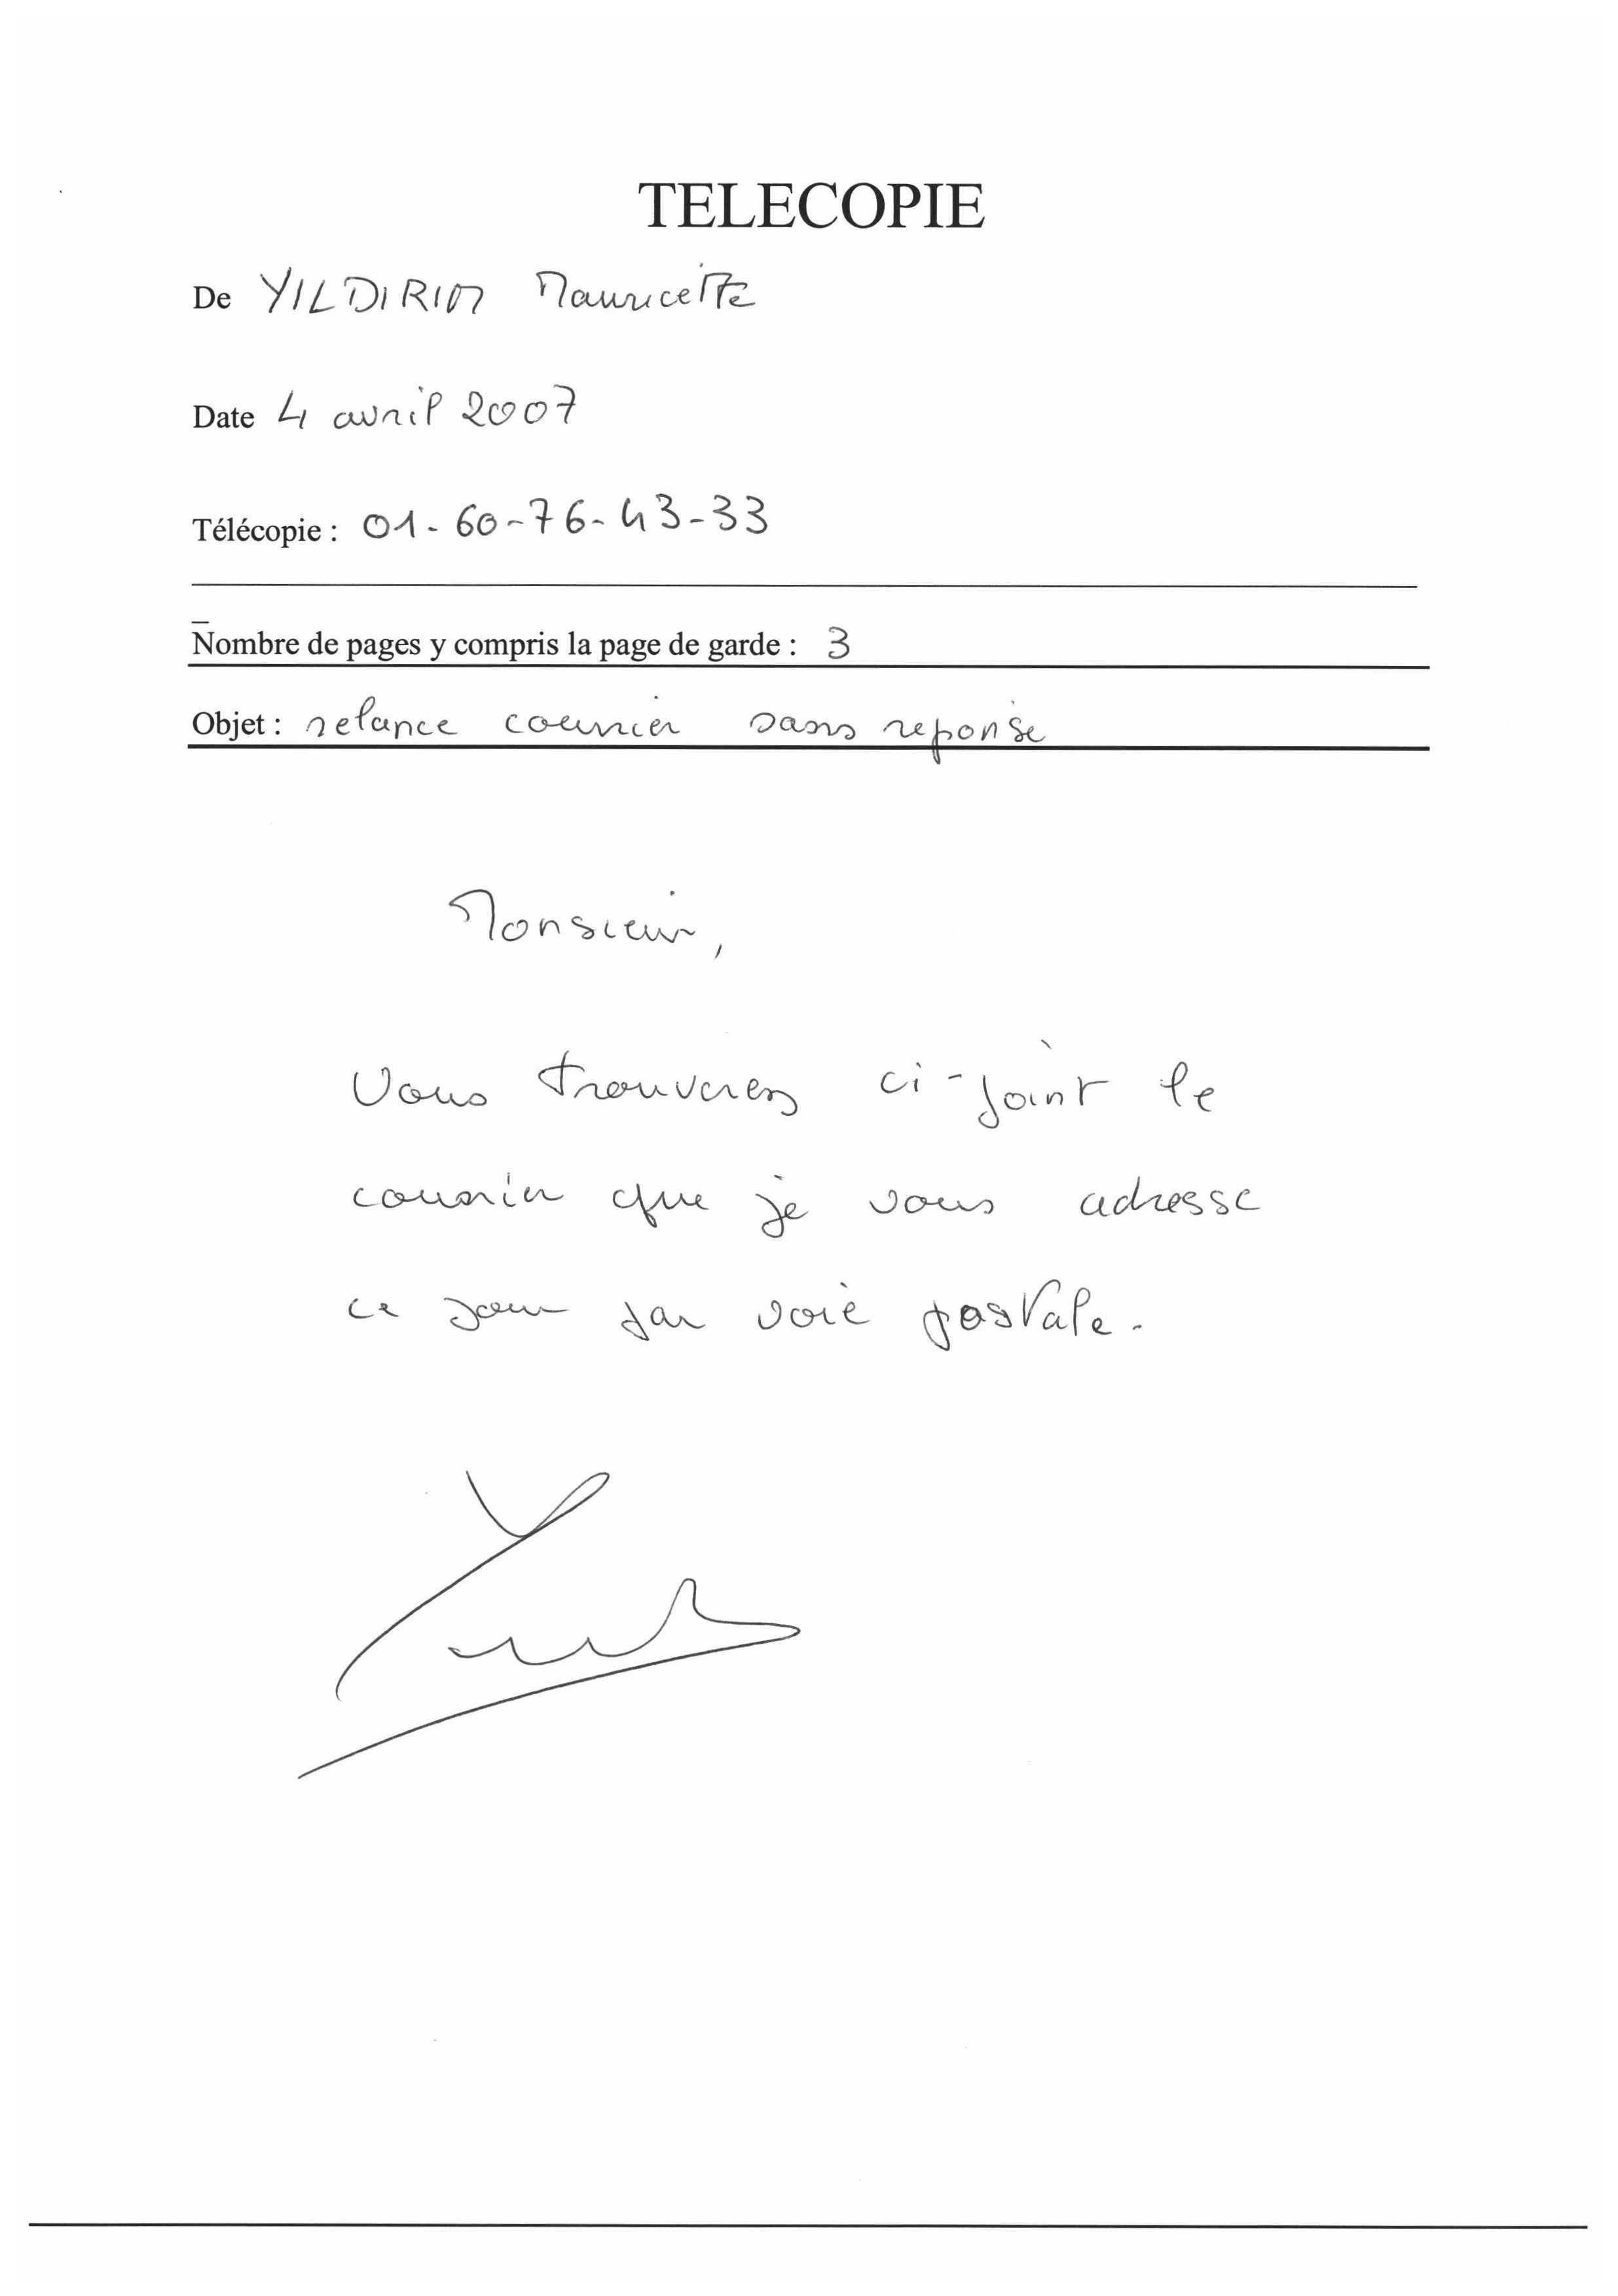 TELECOPIE
De YILDIRIM Mauricette
Date 4 avril 2007
Télécopie : 01-60-76-43-33
Nombre de pages y compris la page de garde : 3
Objet : relance courrier sans reponse
Monsieur,
Vous trouverez ci-joint le
courrier que je vous adresse
ce jour par voie postale.